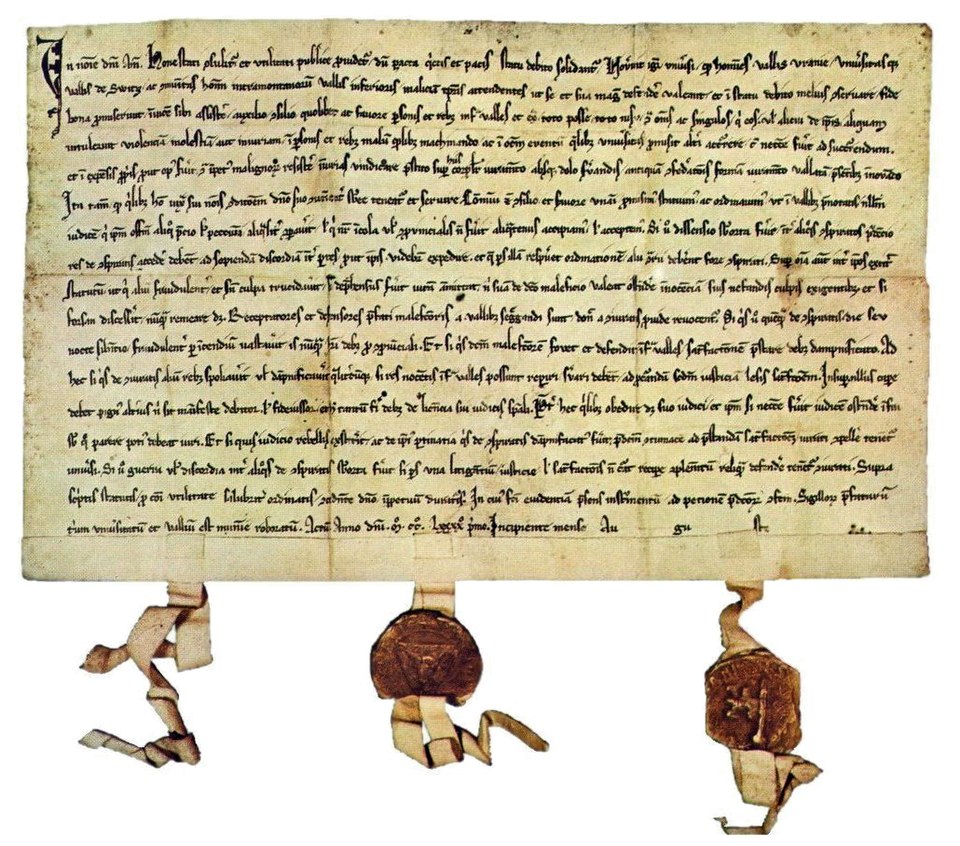 In noie dni am. Honestati consulitur et utilitati publice providetur dum pacta quietis et pacis statu debito solidantur. Noverint igitur universi, quod homines vallis uranie, universitasque
vallis de Switz, ac munitas hominum intramontanorum vallis inferioris maliciam temporis attendentes ut se et sua magis defendere valeant et in statu debito melius servare fide
bona promiserunt invicem sibi assistere auxilio consilio quolibet ac favore personis et rebus infra valles et extra toto posse toto nisu contra omnes ac singulos qui eos vel alicui de ipsis aliquam
intulerint violenciam molestiam aut iniuriam in personis et rebus malum quodlibet machinando ac in omnem eventum quelibet universitas promisit alteri accurrere cum necesse fuerit ad succurrendum
et in expensis propriis prout opus fuerit contra impetus malignorum resistere iniurias vindicare prestito super hiis corporaliter iuramento absque dolo servandis antiquam confederationis formam iuramento vallatam presentibus innovando
Ita tamen quod quilibet homo iuxta sui nominis conditionem domino suo convenienter subesse teneatur et servire Communi etiam consilio et favore unanimi promisimus statuimus ac ordinavimus ut in vallibus prenotatis nullum
iudicem qui ipsum officium aliquo precio vel peccunia aliqualiter comparaverit vel qui noster incola vel conprovincialis non fuerit aliquatenus accipiamus vel acceptemus. Si vero dissensio suborta fuerit inter aliquos conspiratos prudencio
res de conspiratis accedere debent ad sopiendam discordiam inter partes prout ipsis videbitur expedire et que pars illam respueret ordinationem alii contrarii deberent fore conspirati. Super omnia autem inter ipsos extitit
statutum ut qui alium fraudulenter et sine culpa trucidaverit si deprehensus fuerit vitam ammittat nisi suam de dicto maleficio valeat ostendere innocenciam suis nefandis culpis exigentibus et si
forsan discesserit nunquam remeare debet. Receptatores et defensores prefati malefactoris a vallibus segregandi sunt donec a coniuratis provide revocentur. Si quis vero quemquam de conspiratis die seu
nocte silentio fraudulenter per incendium vastaverit is nunquam haberi debet pro conprovinciali. Et si quis dictum malefactorem fovet et defendit infra valles satisfactionem prestare debet dampnificato. Ad
hec si quis de coniuratis alium rebus spoliaverit vel dampnificaverit qualitercumque si res nocentis infra valles possunt reperiri servari debent ad procurandam secundum iusticiam lesis satisfactionem. Insuper nullus capere
debet pignus alterius nisi sit manifeste debitor vel fideiussor et hoc tantum fieri debet de licencia sui iudicis speciali. Preter hec quilibet obedire debet suo iudici et ipsum si necesse fuerit iudicem ostendere infra
sub quo parere potius debeat iuri. Et si quis iudicio rebellis exstiterit ac de ipsius pertinatia quis de conspiratis dampnificatus fuerit predictum contumacem ad prestandam satisfactionem iurati compellere tenentur
universi. Si vero guerra vel discordia inter aliquos de conspiratis suborta fuerit si pars una litigantium iusticie vel satisfactionis non curat recipere complementum reliquam defendere tenentur coniurati. Supra
scriptis statutis pro communi utilitate salubriter ordinatis concedente domino inperpetuum duraturis. In cuius facti evidentiam presens instrumentum ad peticionem predictorum confectum Sigillorum prefatarum
trium universitatum et vallium est munimine roboratum. Actum Anno dni. M. CC. LXXXX primo. Incipiente mense Au gu st.